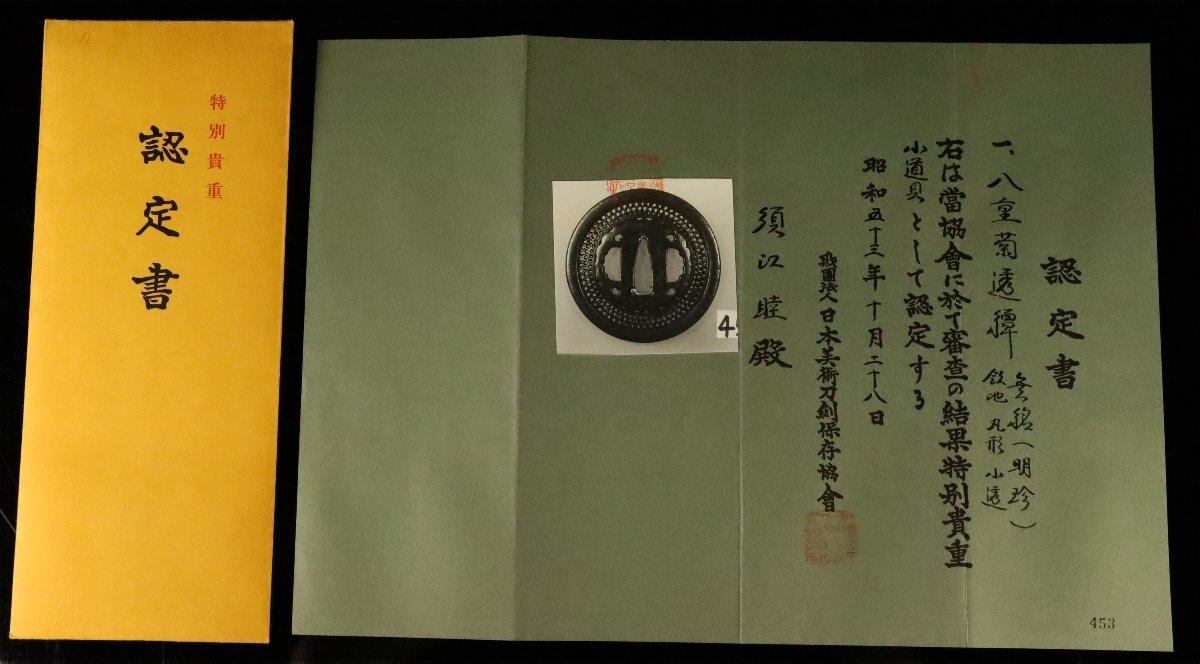 特別貴重
認定書
認定書
一、八重菊透鐔
無銘(明珍)
鉄地 丸形 小透
右は當協會に於て審査の結果特別貴重
小道具として認定する
昭和五十三年十月二十八日
財團法人日本美術刀剣保存協會
須江睦殿
453